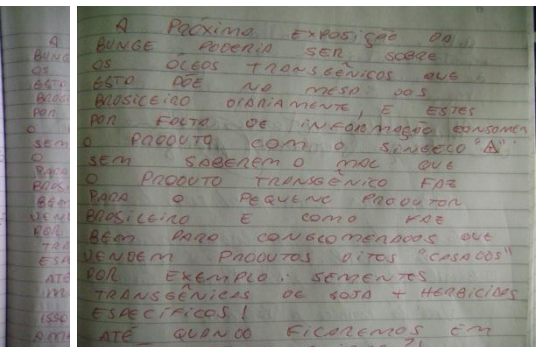 A PRÓXIMA EXPOSIÇÃO DA
BUNGE PODERIA SER SOBRE
OS ÓLEOS TRANSGÊNICOS QUE
ESTA PÕE NA MESA DOS
BRASILEIRO DIARIAMENTE, E ESTES
POR FALTA DE INFORMAÇÃO CONSOMEM
O PRODUTO, COM O SINGELO "A"
SEM SABEREM O MAL QUE
O PRODUTO TRANSGÊNICO FAZ
PARA O PEQUENO PRODUTOR
BRASILEIRO E COMO FAZ
BEM PARA CONGLOMERADOS QUE
VENDEM PRODUTOS DITOS "CASADOS"
POR EXEMPLO: SEMENTES
TRANSGÊNICAS DE SOJA + HERBICIDAS
ESPECÍFICOS!
ATÉ QUANDO FICAREMOS EM